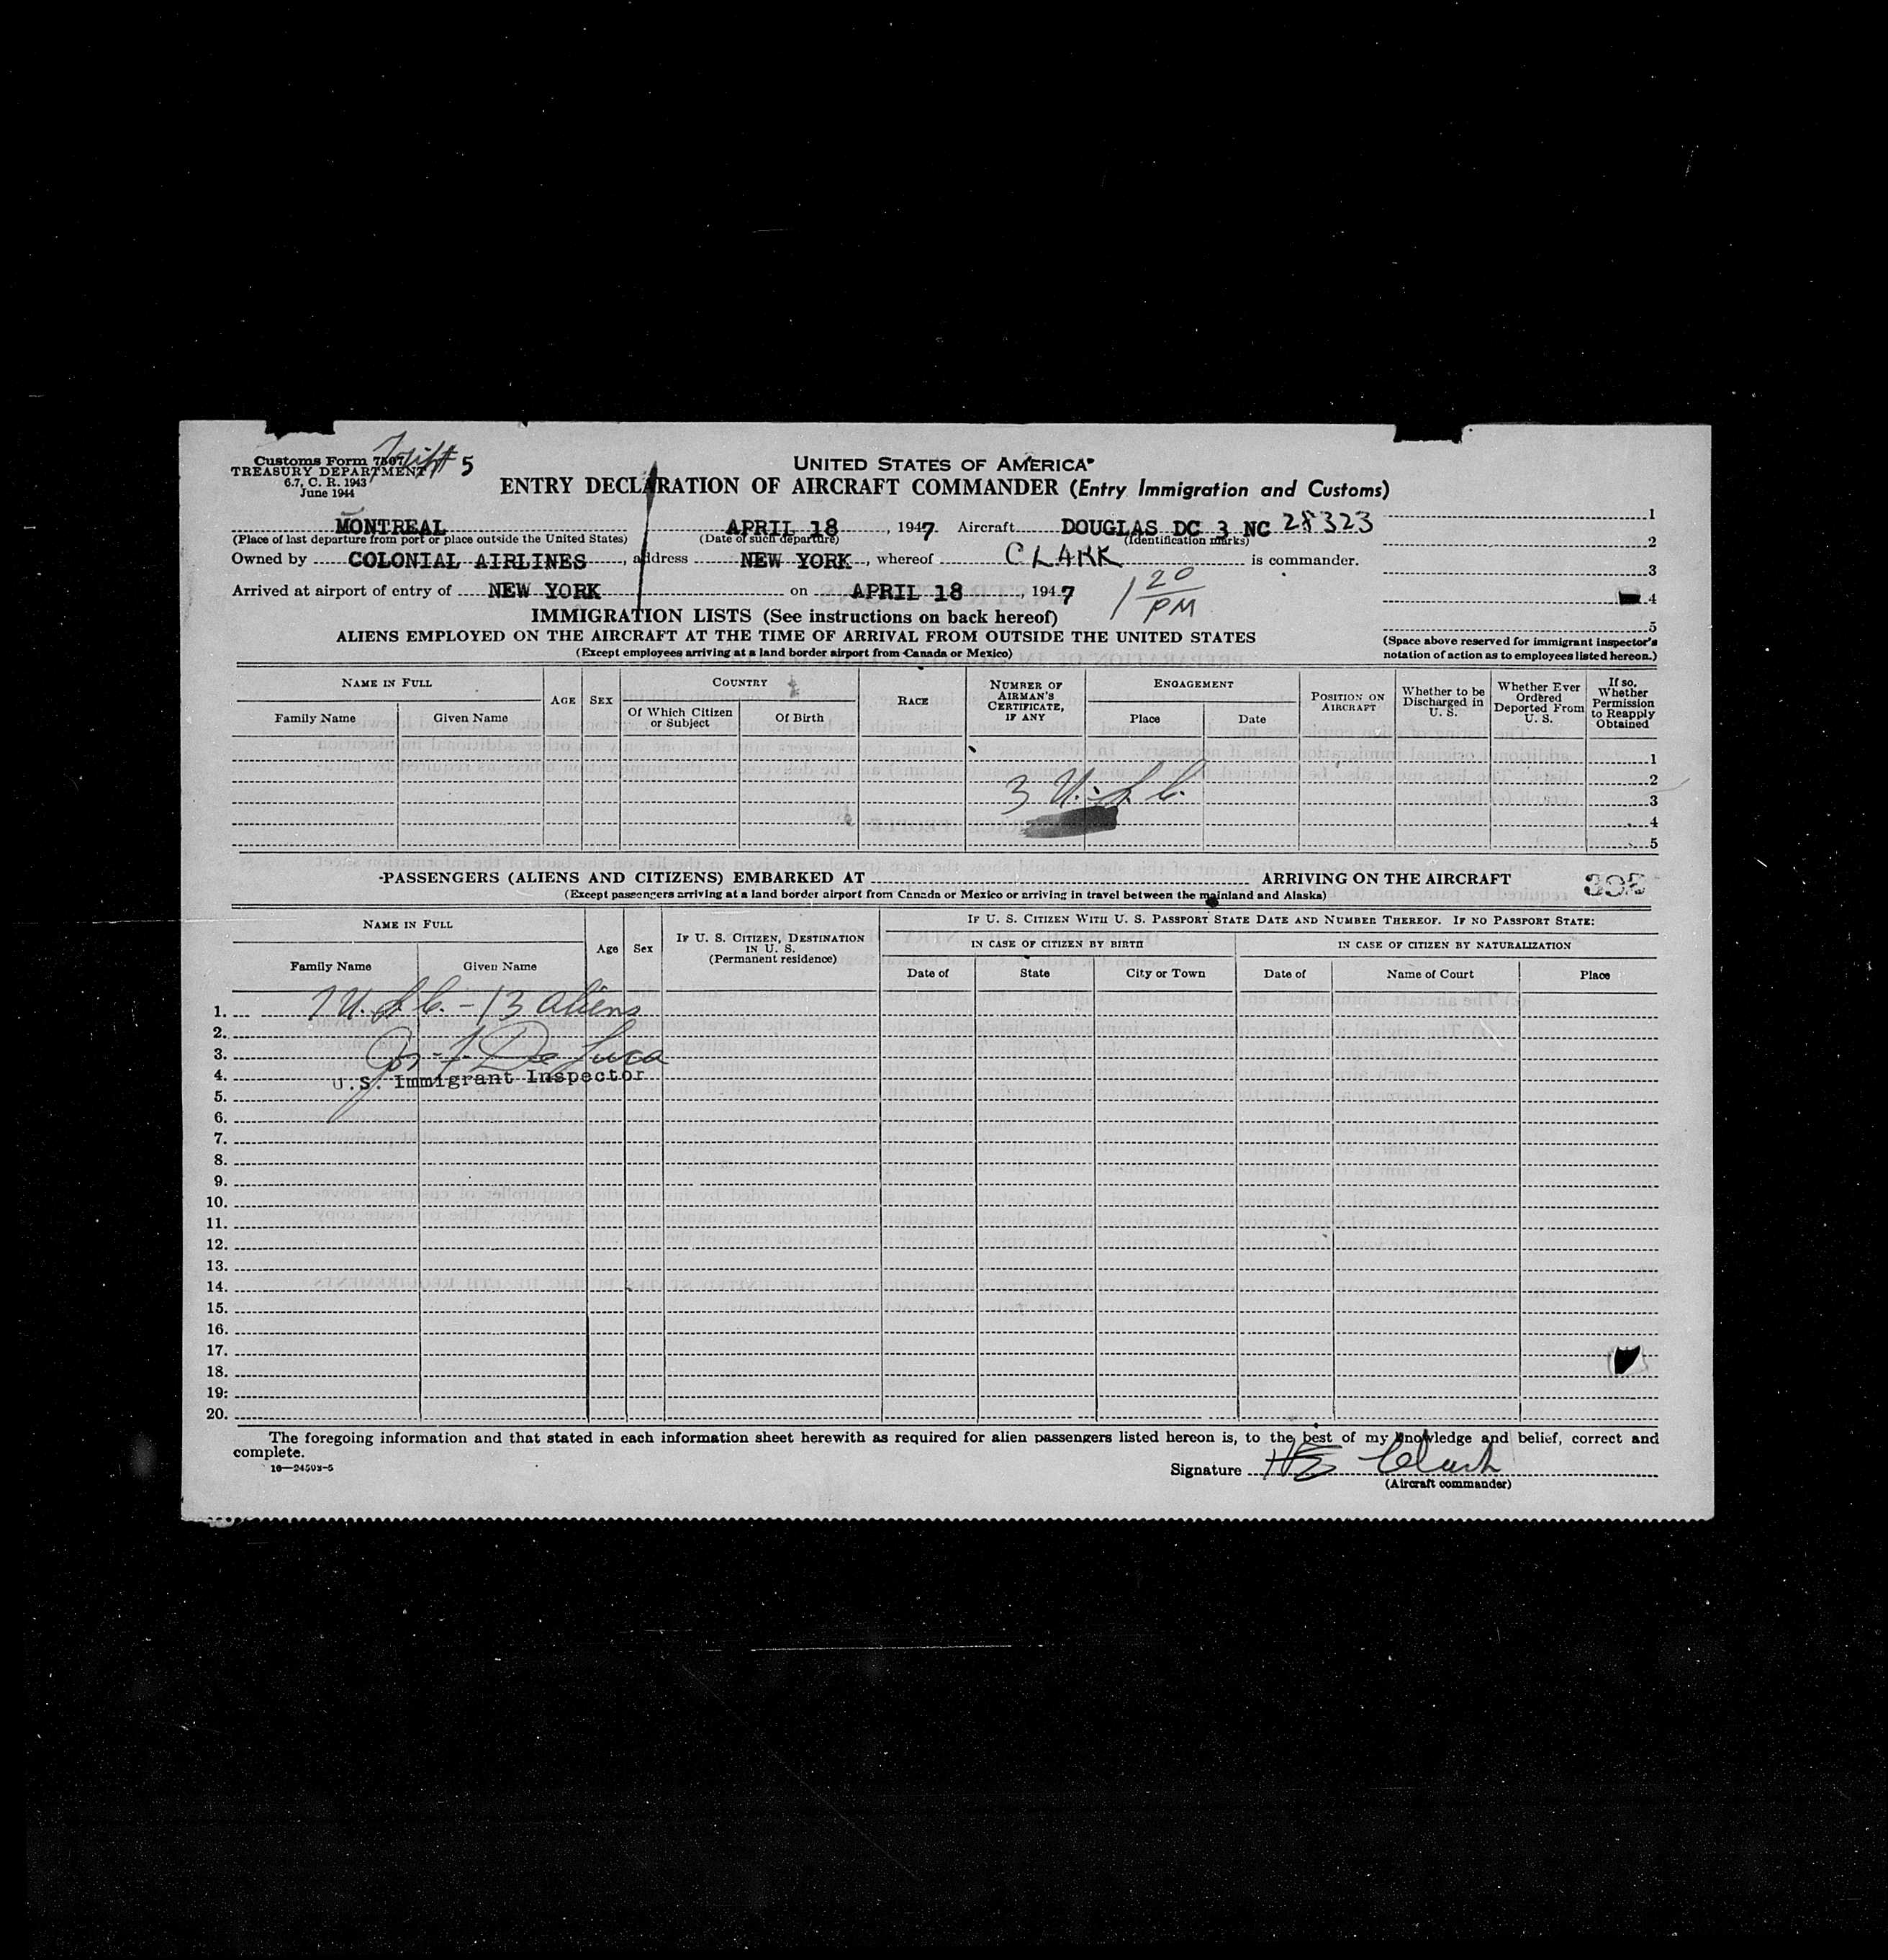 Customs Form 7507 # 5
TREASURY DEPARTMENT
6.7, C. R. 1943
June 1944
UNITED STATES OF AMERICA
ENTRY DECLARATION OF AIRCRAFT COMMANDER (Entry Immigration and Customs)
MONTREAL APRIL 18, 1947 Aircraft DOUGLAS DC 3 NC 28323
(Place of last departure from port or place outside the United States) (Date of such departure) (Identification marks)
Owned by COLONIAL AIRLINES, address NEW YORK, whereof CLARK is commander.
Arrived at airport of entry of NEW YORK on APRIL 18, 1947 1 20 PM
1
2
3
4
5
(Space above reserved for immigrant inspector's notation of action as to employees listed hereon.)
IMMIGRATION LISTS (See instructions on back hereof)
ALIENS EMPLOYED ON THE AIRCRAFT AT THE TIME OF ARRIVAL FROM OUTSIDE THE UNITED STATES
(Except employees arriving at a land border airport from Canada or Mexico)
NAME IN FULL
Family Name Given Name
AGE SEX
COUNTRY
Of Which Citizen or Subject Of Birth
RACE
NUMBER OF AIRMAN'S CERTIFICATE, IF ANY
ENGAGEMENT
Place Date
POSITION ON AIRCRAFT
Whether to be Discharged in U. S.
Whether Ever Ordered Deported From U. S.
If so, Whether Permission to Reapply Obtained
1
2
3 U. S. C. 3
4
5
PASSENGERS (ALIENS AND CITIZENS) EMBARKED AT ARRIVING ON THE AIRCRAFT
(Except passengers arriving at a land border airport from Canada or Mexico or arriving in travel between the mainland and Alaska)
NAME IN FULL
Family Name Given Name
Age Sex
IF U. S. CITIZEN, DESTINATION IN U. S.
(Permanent residence)
IF U. S. CITIZEN WITH U. S. PASSPORT STATE DATE AND NUMBER THEREOF. IF NO PASSPORT STATE:
IN CASE OF CITIZEN BY BIRTH IN CASE OF CITIZEN BY NATURALIZATION
Date of State City or Town Date of Name of Court Place
1. 7 U. S. C. - 13 aliens
2.
3. Jos. F. De Luca
4. U.S. Immigrant Inspector
5.
6.
7.
8.
9.
10.
11.
12.
13.
14.
15.
16.
17.
18.
19.
20.
The foregoing information and that stated in each information sheet herewith as required for alien passengers listed hereon is, to the best of my knowledge and belief, correct and
complete.
16—24593-5
Signature H E Clark
(Aircraft commander)